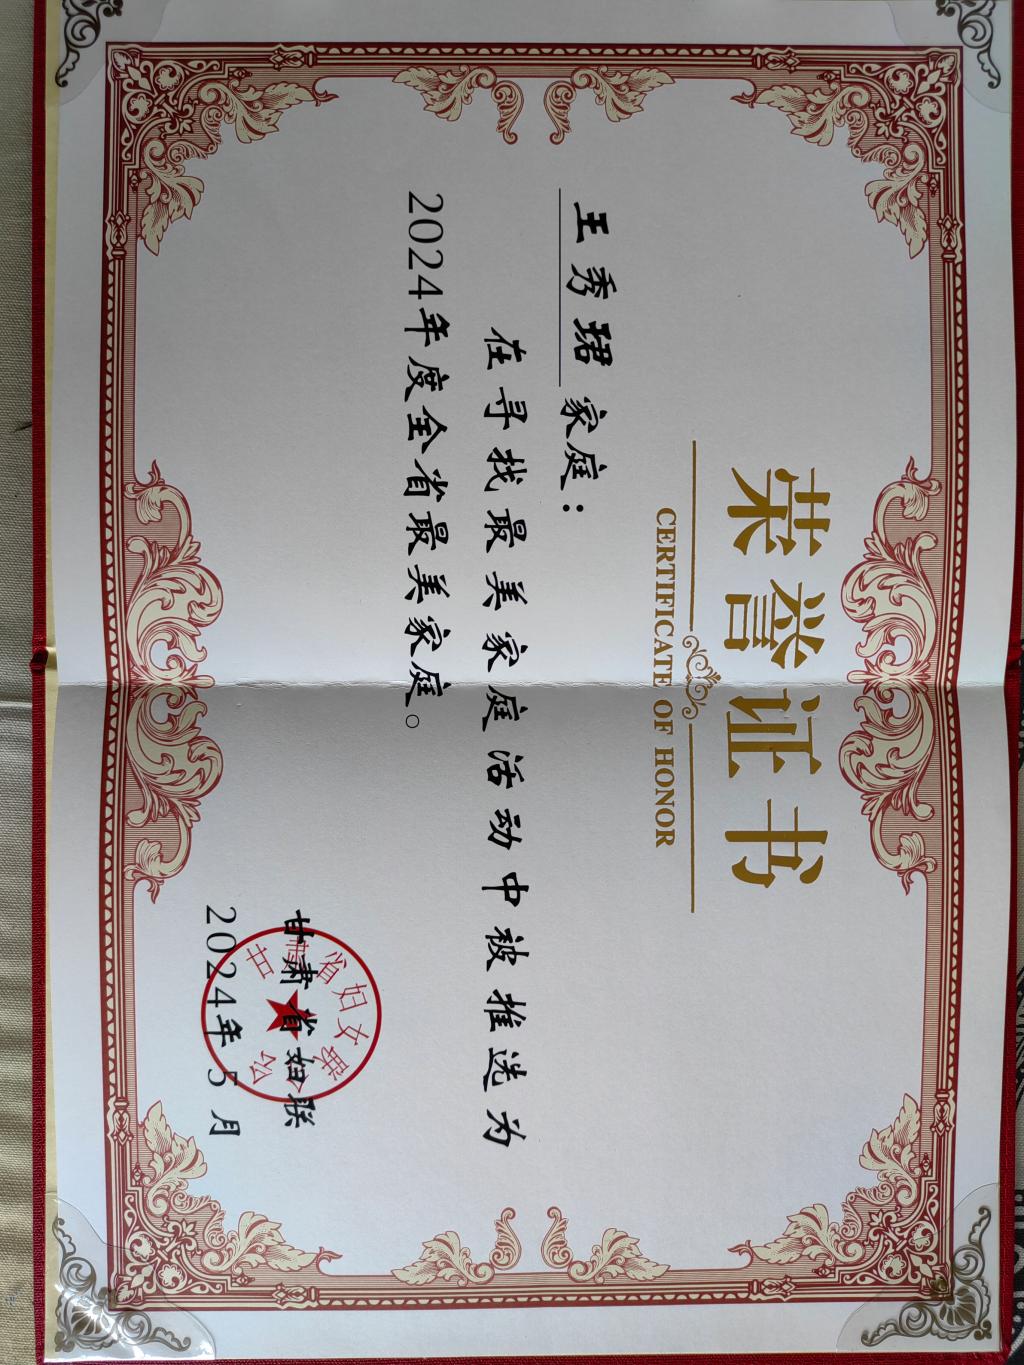 荣誉证书
CERTIFICATE OF HONOR
王秀珺 家庭：
在寻找最美家庭活动中被推选为
2024年度全省最美家庭。
甘肃省妇联
2024年5月
甘肃省妇女联合会